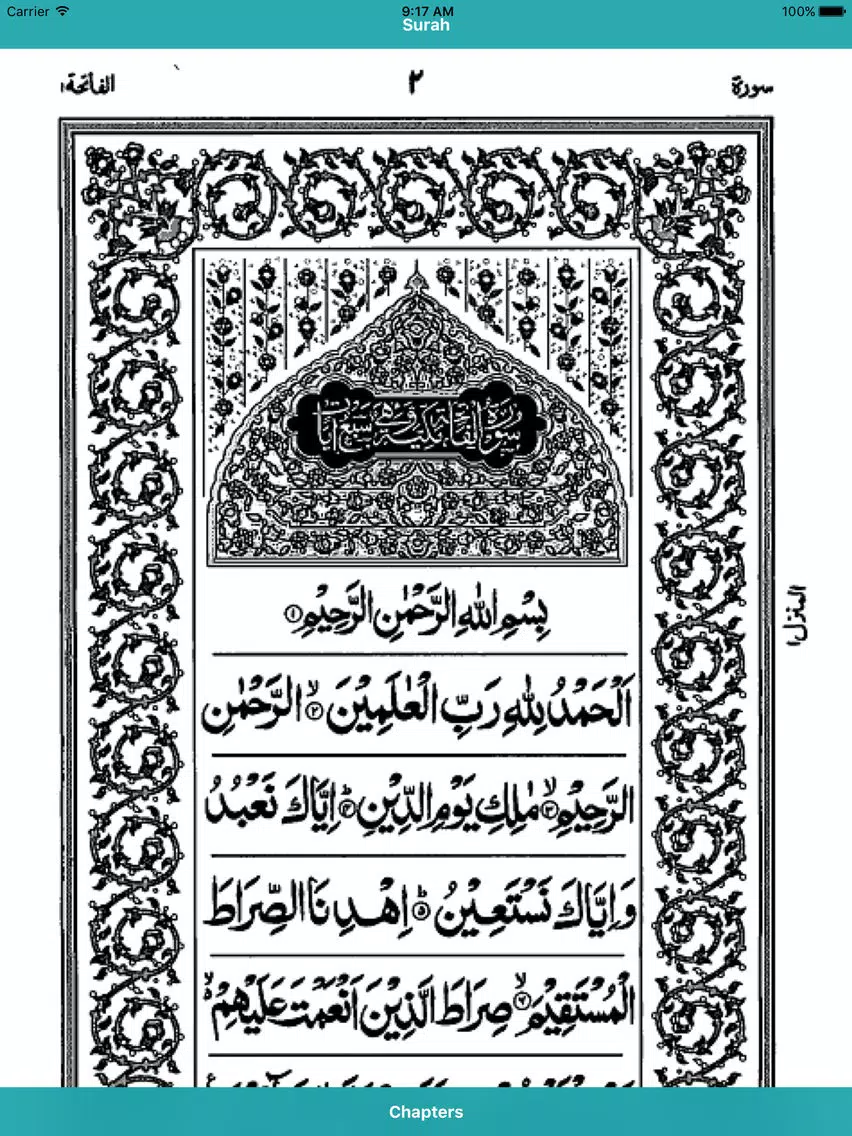 Carrier 9:17 AM 100%
Surah
سورة ٢ الفاتحة ١
سورة الفاتحة مكية وهي سبع آيات
بِسْمِ اللّٰهِ الرَّحْمٰنِ الرَّحِيْمِ ١
اَلْحَمْدُ لِلّٰهِ رَبِّ الْعٰلَمِيْنَ ۙ ٢ الرَّحْمٰنِ
الرَّحِيْمِ ۙ ٣ مٰلِكِ يَوْمِ الدِّيْنِ ؕ ٤ اِيَّاكَ نَعْبُدُ
وَاِيَّاكَ نَسْتَعِيْنُ ؕ ٥ اِهْدِنَا الصِّرَاطَ
الْمُسْتَقِيْمَ ۙ ٦ صِرَاطَ الَّذِيْنَ اَنْعَمْتَ عَلَيْهِمْ
المنزل ١
Chapters